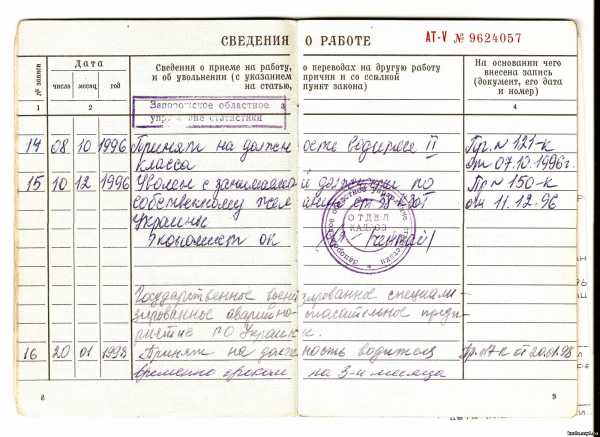 СВЕДЕНИЯ О РАБОТЕ АТ-V № 9624057
№ записи
Дата
число месяц год
Сведения о приеме на работу, о переводах на другую работу
и об увольнении (с указанием причин и со ссылкой
на статью, пункт закона)
На основании чего
внесена запись
(документ, его дата
и номер)
1 2 3 4
Запорожское областное
управление статистики
14 08 10 1996 Принят на должность водителя II Пр. № 121-к
класса от 07.10.1996г.
15 10 12 1996 Уволен с занимаемой должности по Пр № 150-к
собственному ст 38 КЗоТ от 11.12.96
Украины
Экономист ок
ОТДЕЛ
КАДРОВ
Государственное военизированное специали-
зированное аварийно-спасательное предп-
риятие ПО Украины.
16 20 01 1998 Принят на должность водителя Пр. №7-к от 20.01.98
временно сроком на 3-и месяца
8 9